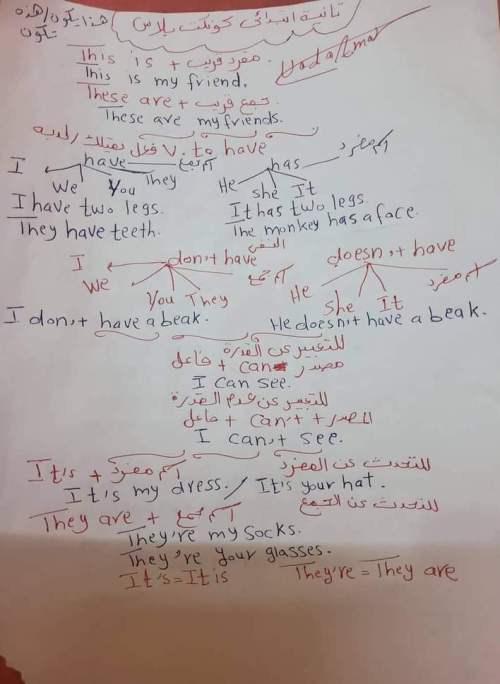 ثانية ابتدائى كونكت بلاس
هذا يكون/هذه تكون
Hoda/Omar
This is + مفرد قريب.
This is my friend.
These are + جمع قريب.
These are my friends.
V. to have فعل يمتلك/لديه
I have اسم جمع
We You They
has اسم مفرد
He She It
I have two legs.
They have teeth.
It has two legs.
The monkey has a face.
النفى
I don,t have
We You They اسم جمع
doesn,t have
He She It اسم مفرد
I don,t have a beak.
He doesn,t have a beak.
للتعبير عن القدرة
مصدر + can + فاعل
I can see.
للتعبير عن عدم القدرة
المصدر + can,t + فاعل
I can,t see.
It's + اسم مفرد للتحدث عن المفرد
It's my dress. / It's your hat.
They are + اسم جمع للتحدث عن الجمع
They're my socks.
They're your glasses.
It's = It is They're = They are